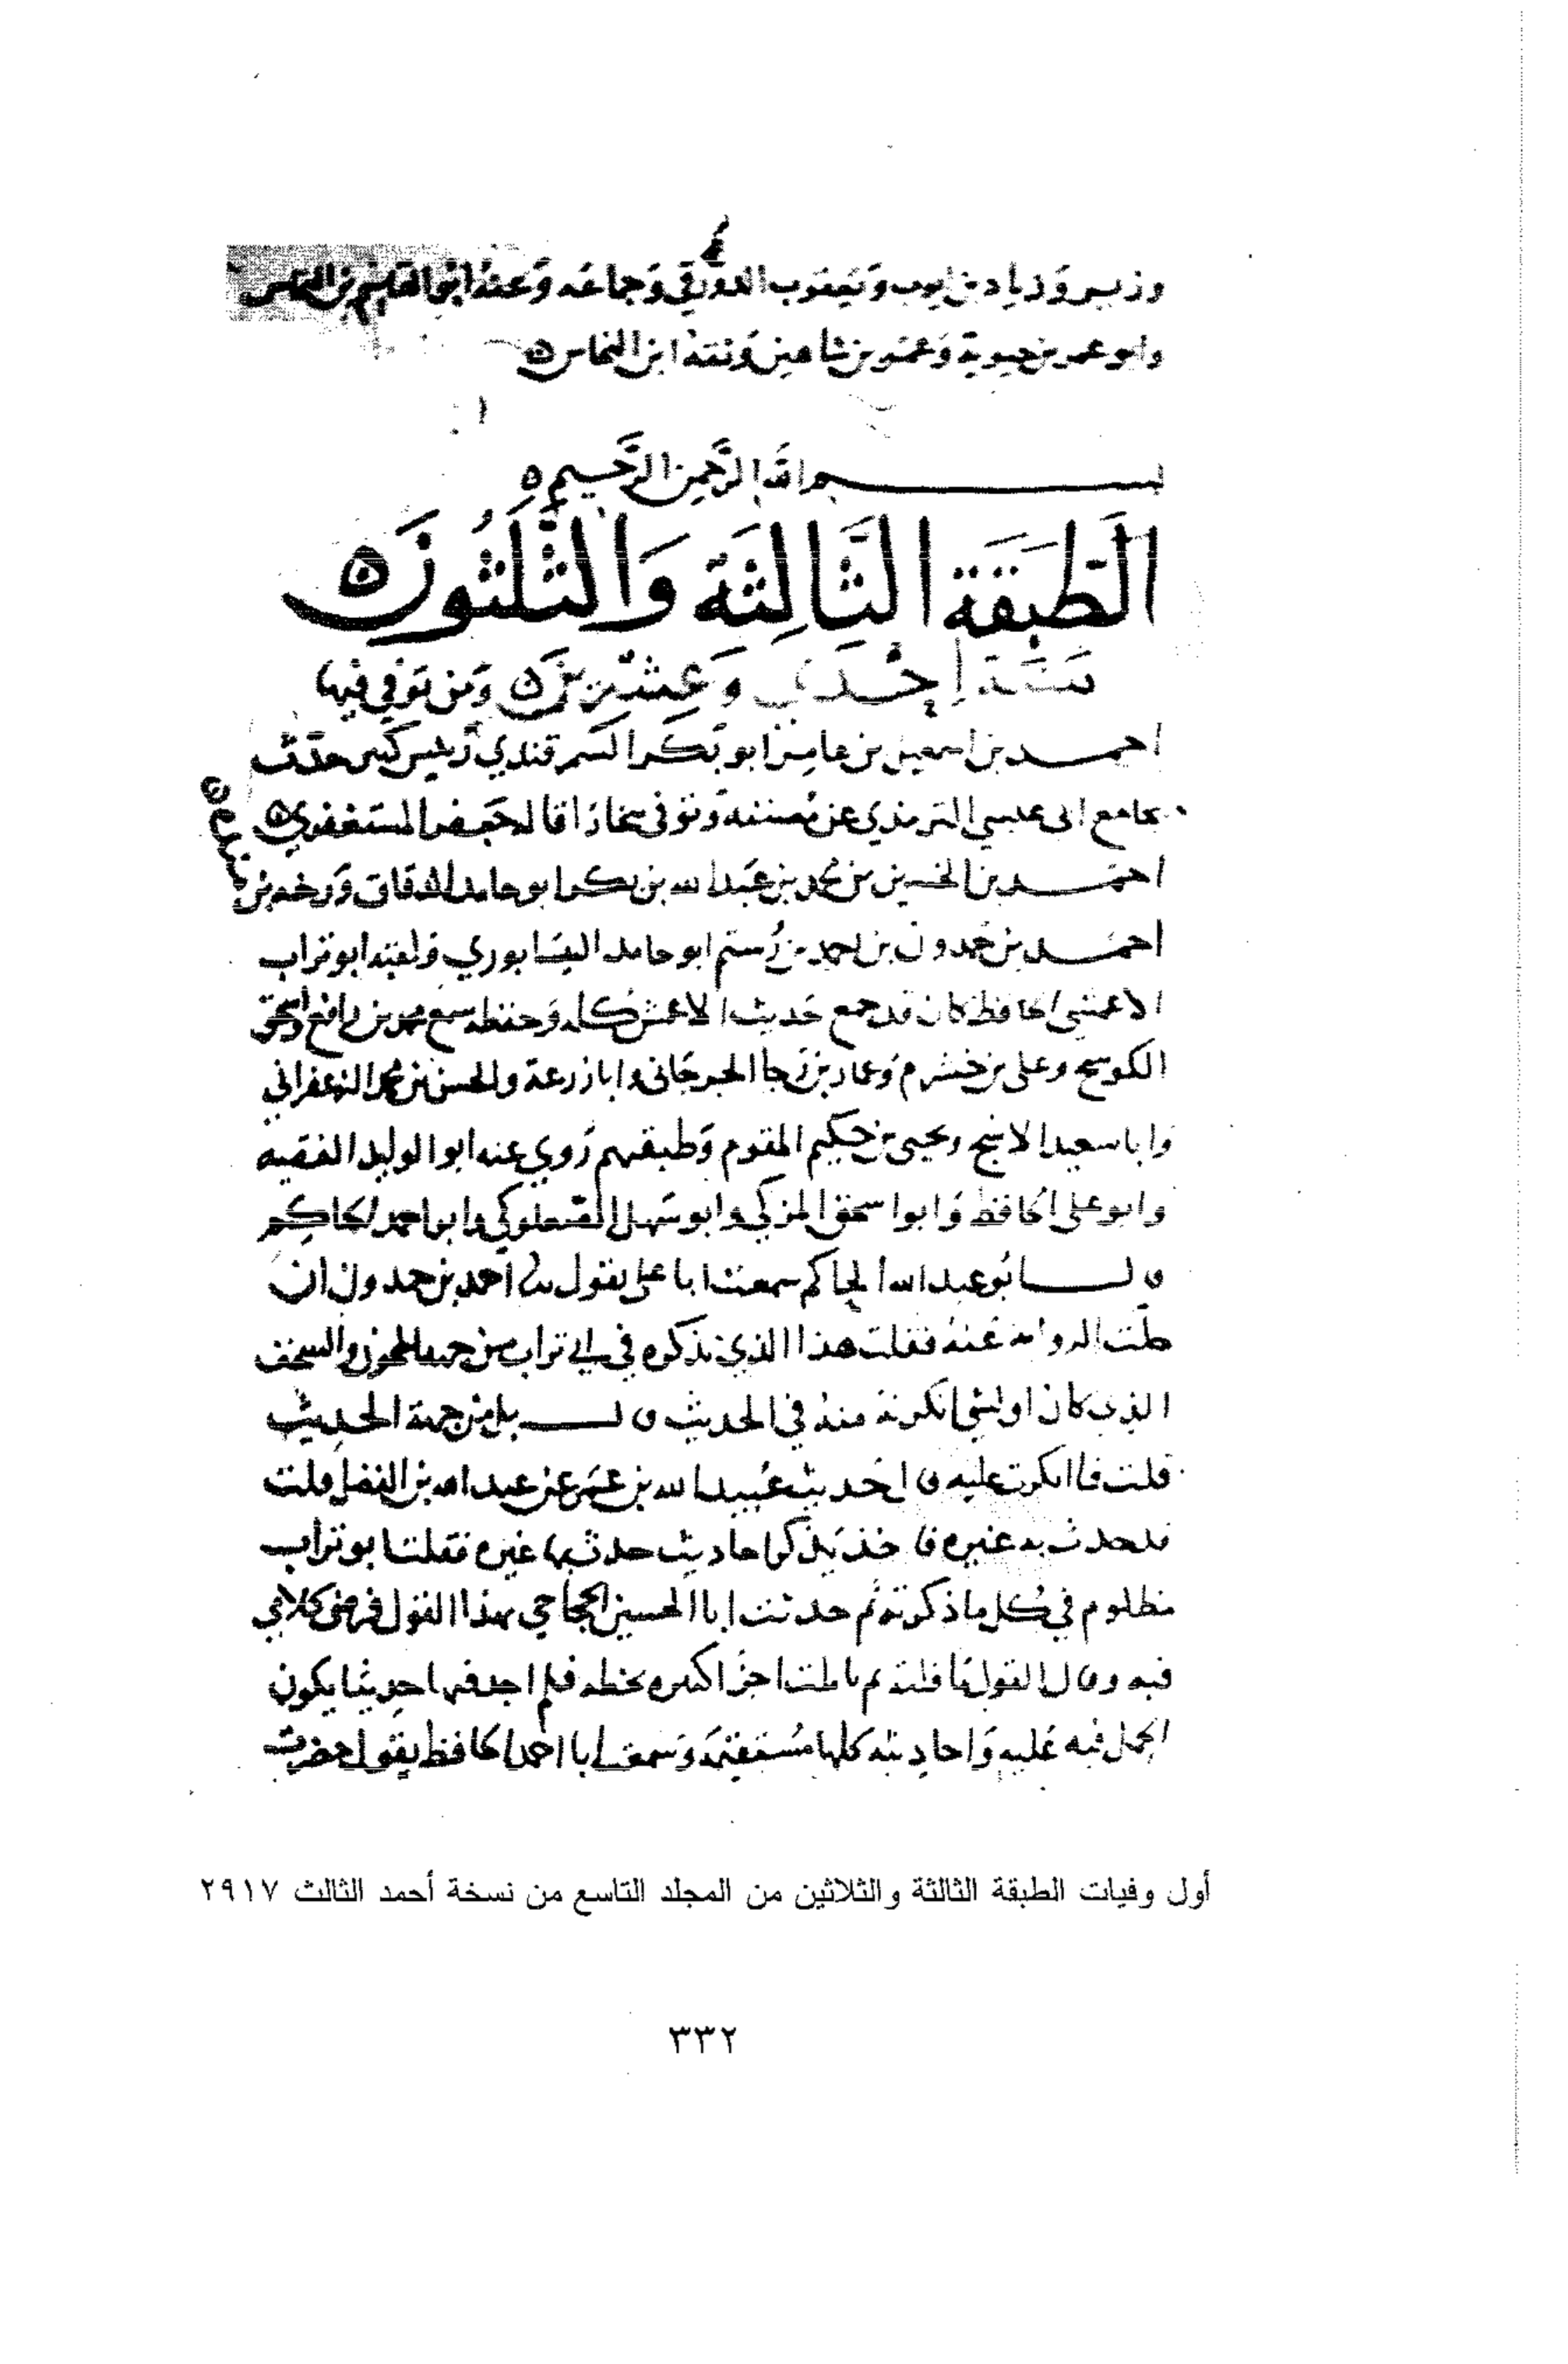 وزبير وزياد بن ايوب ويعقوب الدورقي وجماعه وعنه ابو القسم بن النحاس
وابو عمر بن حيوية وعمر بن شاهين وثقه ابن النحاس
بسم الله الرَّحمن الرَّحيم
الطَّبَقَة الثَّالِثَة وَالثَّلثُون
سَنَة اِحْدَي وَعِشْرِين وَمن توفي فيها
احمد بن اسمعيل بن عامر ابو بكر السمرقندي رئيس كبير حدث
بجامع ابى عيسي الترمذي عن مصنفه وتوفى ببخارَا قاله جعفر المستغفري
احمد بن الحسين بن محمد بن عبد الله بن بكر ابو حامد الدقاق ورخه بن
احمد بن حمدون بن احمد بن رُستم ابو حامد النيسابوري ولقبه ابو تراب
الاعمشي الحافظ كان قد جمع حَديث الاعمش كله وحفظه سمع محمد بن رافع واسحق
الكوسج وعلى بن خشرم وعمار بن رجا الجرجاني وابا زرعة والحسن بن محمد الزعفراني
وابا سعيد الاشج ويحيى بن حكيم المقوم وطبقتهم رَوي عنه ابو الوليد الفقيه
وابو على الحافظ وَابو اسحق المزكي وابو سَهل الصعلوكي وابو احمد الحاكم
قال ابُو عبد الله الحاكم سمعت ابا على يقول ثنا احمد بن حمدون ان
حلت الروايه عنهُ فقلت هذا الذي تذكره في ابي تراب من جهة المجون والسخف
الذي كان اولشي انكرته منهُ في الحديث قال بل من جهة الحديث
قلت فما انكرت عليه قال حَديث عُبيد الله بن عمَر عن عبد الله بن الفضل قلت
قد حدث به غيره فاخذ يَذكر احاديث حدث بها غيره فقلت ابو تراب
مظلوم في كل ما ذكرته ثم حدثت ابا الحسين الحجاجي بهذا القول فرضى كلامي
فيه وقال القول ما قلته ثم تاملت اجزَا كثيره بخطه فلم اجد فيها حديثا يكون
الحمل فيه عَليه وَاحاديثه كلها مُستقيمَة وَسمعت ابا احمد الحافظ يقول حضرت
أول وفيات الطبقة الثالثة والثلاثين من المجلد التاسع من نسخة أحمد الثالث ٢٩١٧
٣٣٢